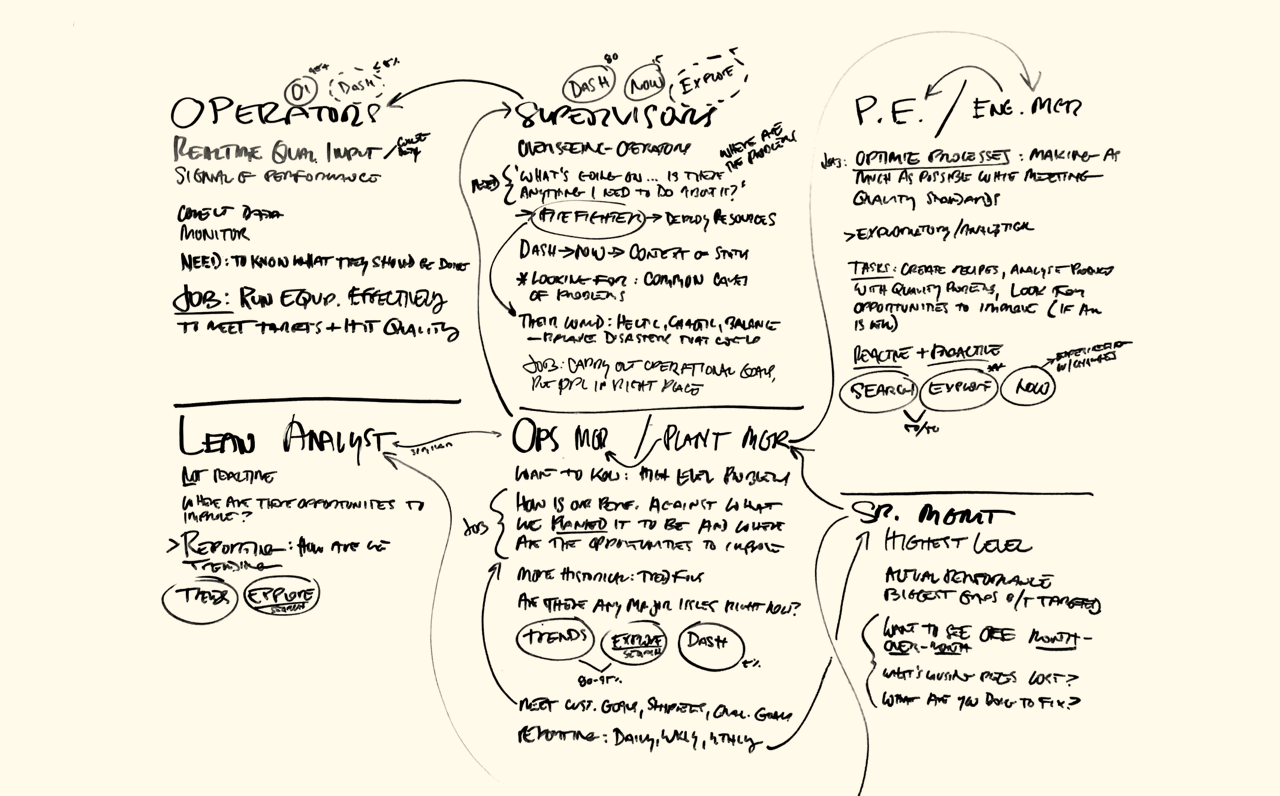 OPERATORS
DASH
REALTIME QUAL INPUT /
SIGNAL OF PERFORMANCE
COLLECT DATA
MONITOR
NEED: TO KNOW WHAT THEY SHOULD BE DOING
JOB: RUN EQUIP. EFFECTIVELY
TO MEET TARGETS + HIT QUALITY
80
5
DASH
NOW
EXPLORE
SUPERVISORS
OVERSEEING OPERATORS
WHERE ARE
THE PROBLEMS
NEED
"WHAT'S GOING ON... IS THERE
ANYTHING I NEED TO DO ABOUT IT?"
→ FIREFIGHTER → DEPLOY RESOURCES
DASH → NOW → CONTEXT OF
* LOOKING FOR: COMMON CAUSES
OF PROBLEMS
THEIR WORLD: HECTIC, CHAOTIC, BALANCE
DISASTERS THAT COULD
JOB: CARRY OUT OPERATIONAL GOALS,
PUT PPL IN RIGHT PLACE
P.E. / ENG. MGR
JOB: OPTIMIZE PROCESSES: MAKING AS
MUCH AS POSSIBLE WHILE MEETING
QUALITY STANDARDS
> EXPLORATORY/ANALYTICAL
TASKS: CREATE RECIPES, ANALYZE
WITH QUALITY PROBLEMS, LOOK FOR
OPPORTUNITIES TO IMPROVE (IF ALL
IS WELL)
REACTIVE + PROACTIVE
SEARCH
EXPLORE
**
NOW
W/CHANGES
50/50
LEAN ANALYST
SIMILAR
NOT REALTIME
WHERE ARE THERE OPPORTUNITIES TO
IMPROVE?
> REPORTING: HOW ARE WE
TRENDING
TRENDS
EXPLORE
SEARCH
OPS MGR / PLANT MGR
WANT TO KNOW: HIGH LEVEL PROBLEMS
JOB
HOW IS OUR PERF. AGAINST WHAT
WE PLANNED IT TO BE AND WHERE
ARE THE OPPORTUNITIES TO IMPROVE
MORE HISTORICAL: TREDFUL
ARE THERE ANY MAJOR ISSUES RIGHT NOW?
TRENDS
EXPLORE
SEARCH
DASH
80-95%
5%
MEET CUST. GOALS, SHIPMENTS, QUAL. GOALS
REPORTING: DAILY, WKLY, MTHLY
SR. MGMT
HIGHEST LEVEL
ACTUAL PERFORMANCE
BIGGEST GAPS TARGETED
WANT TO SEE OEE MONTH-
OVER-MONTH
WHAT'S CAUSING LOST?
WHAT ARE YOU DOING TO FIX?